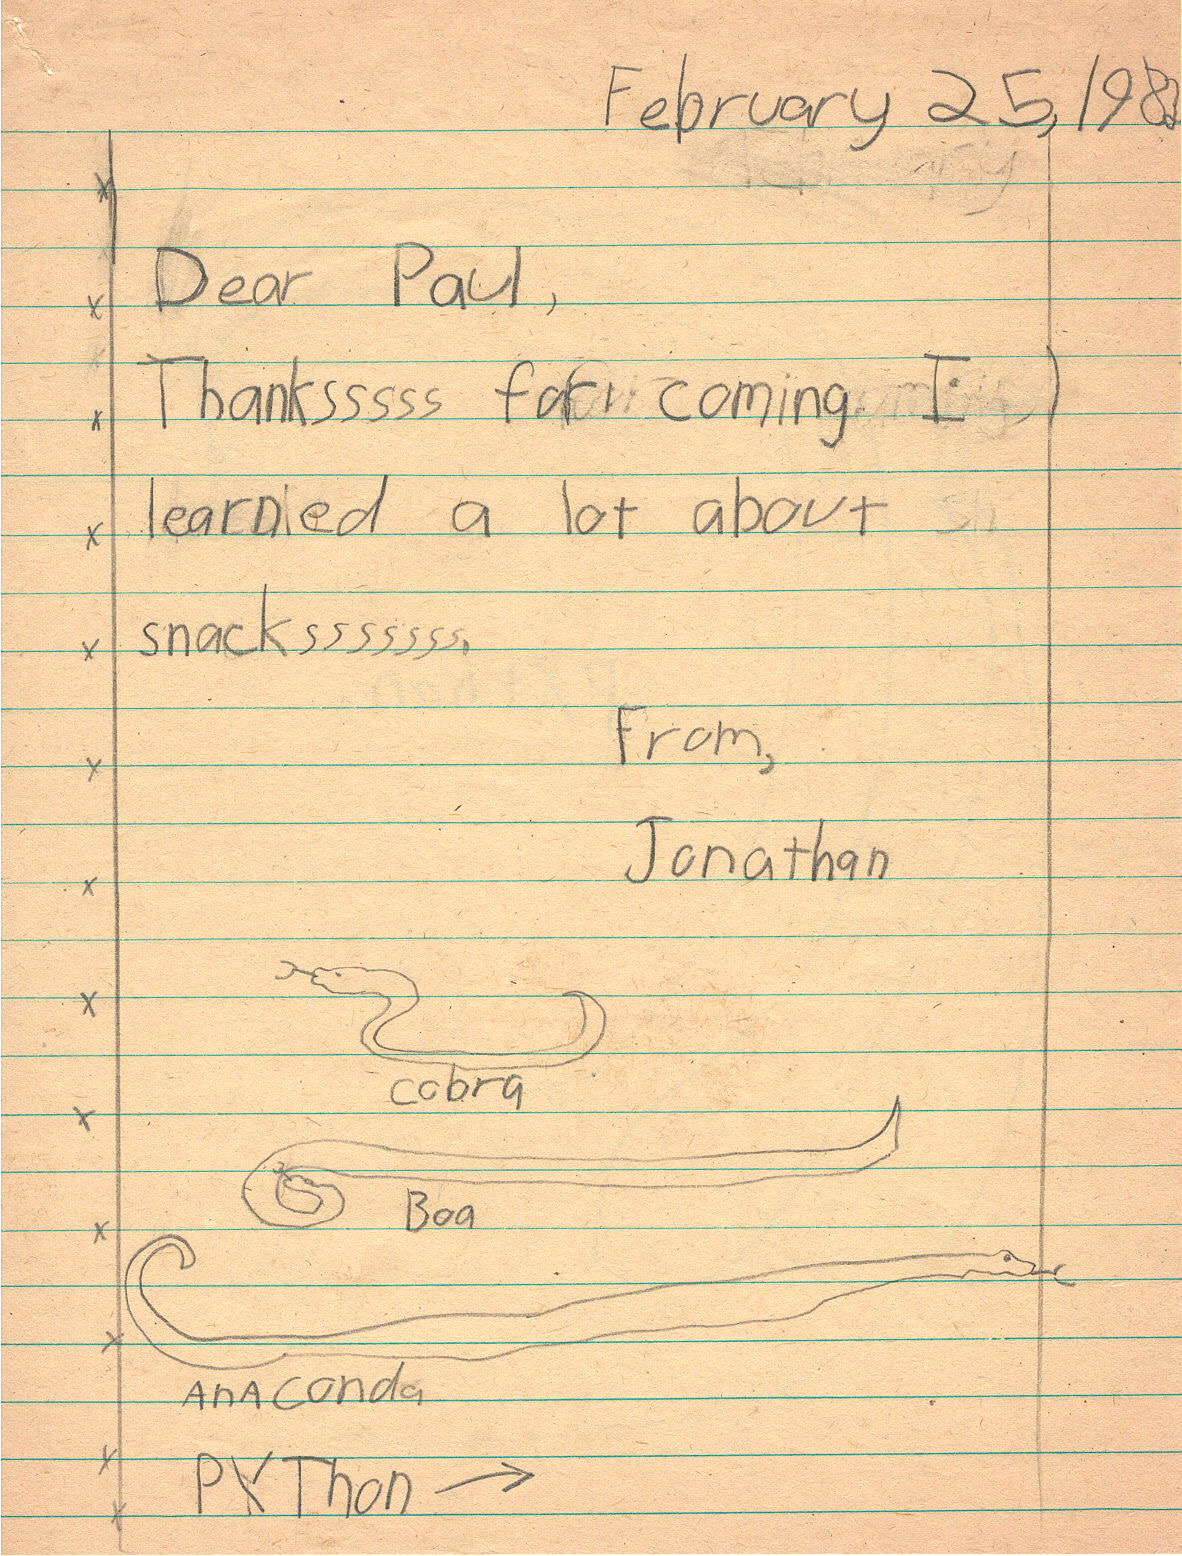 February 25, 198
Dear Paul,
Thanksssss for coming. I
learnied a lot about
snackssssssss.
From,
Jonathan
cobra
Boa
AnAconda
PYThon →